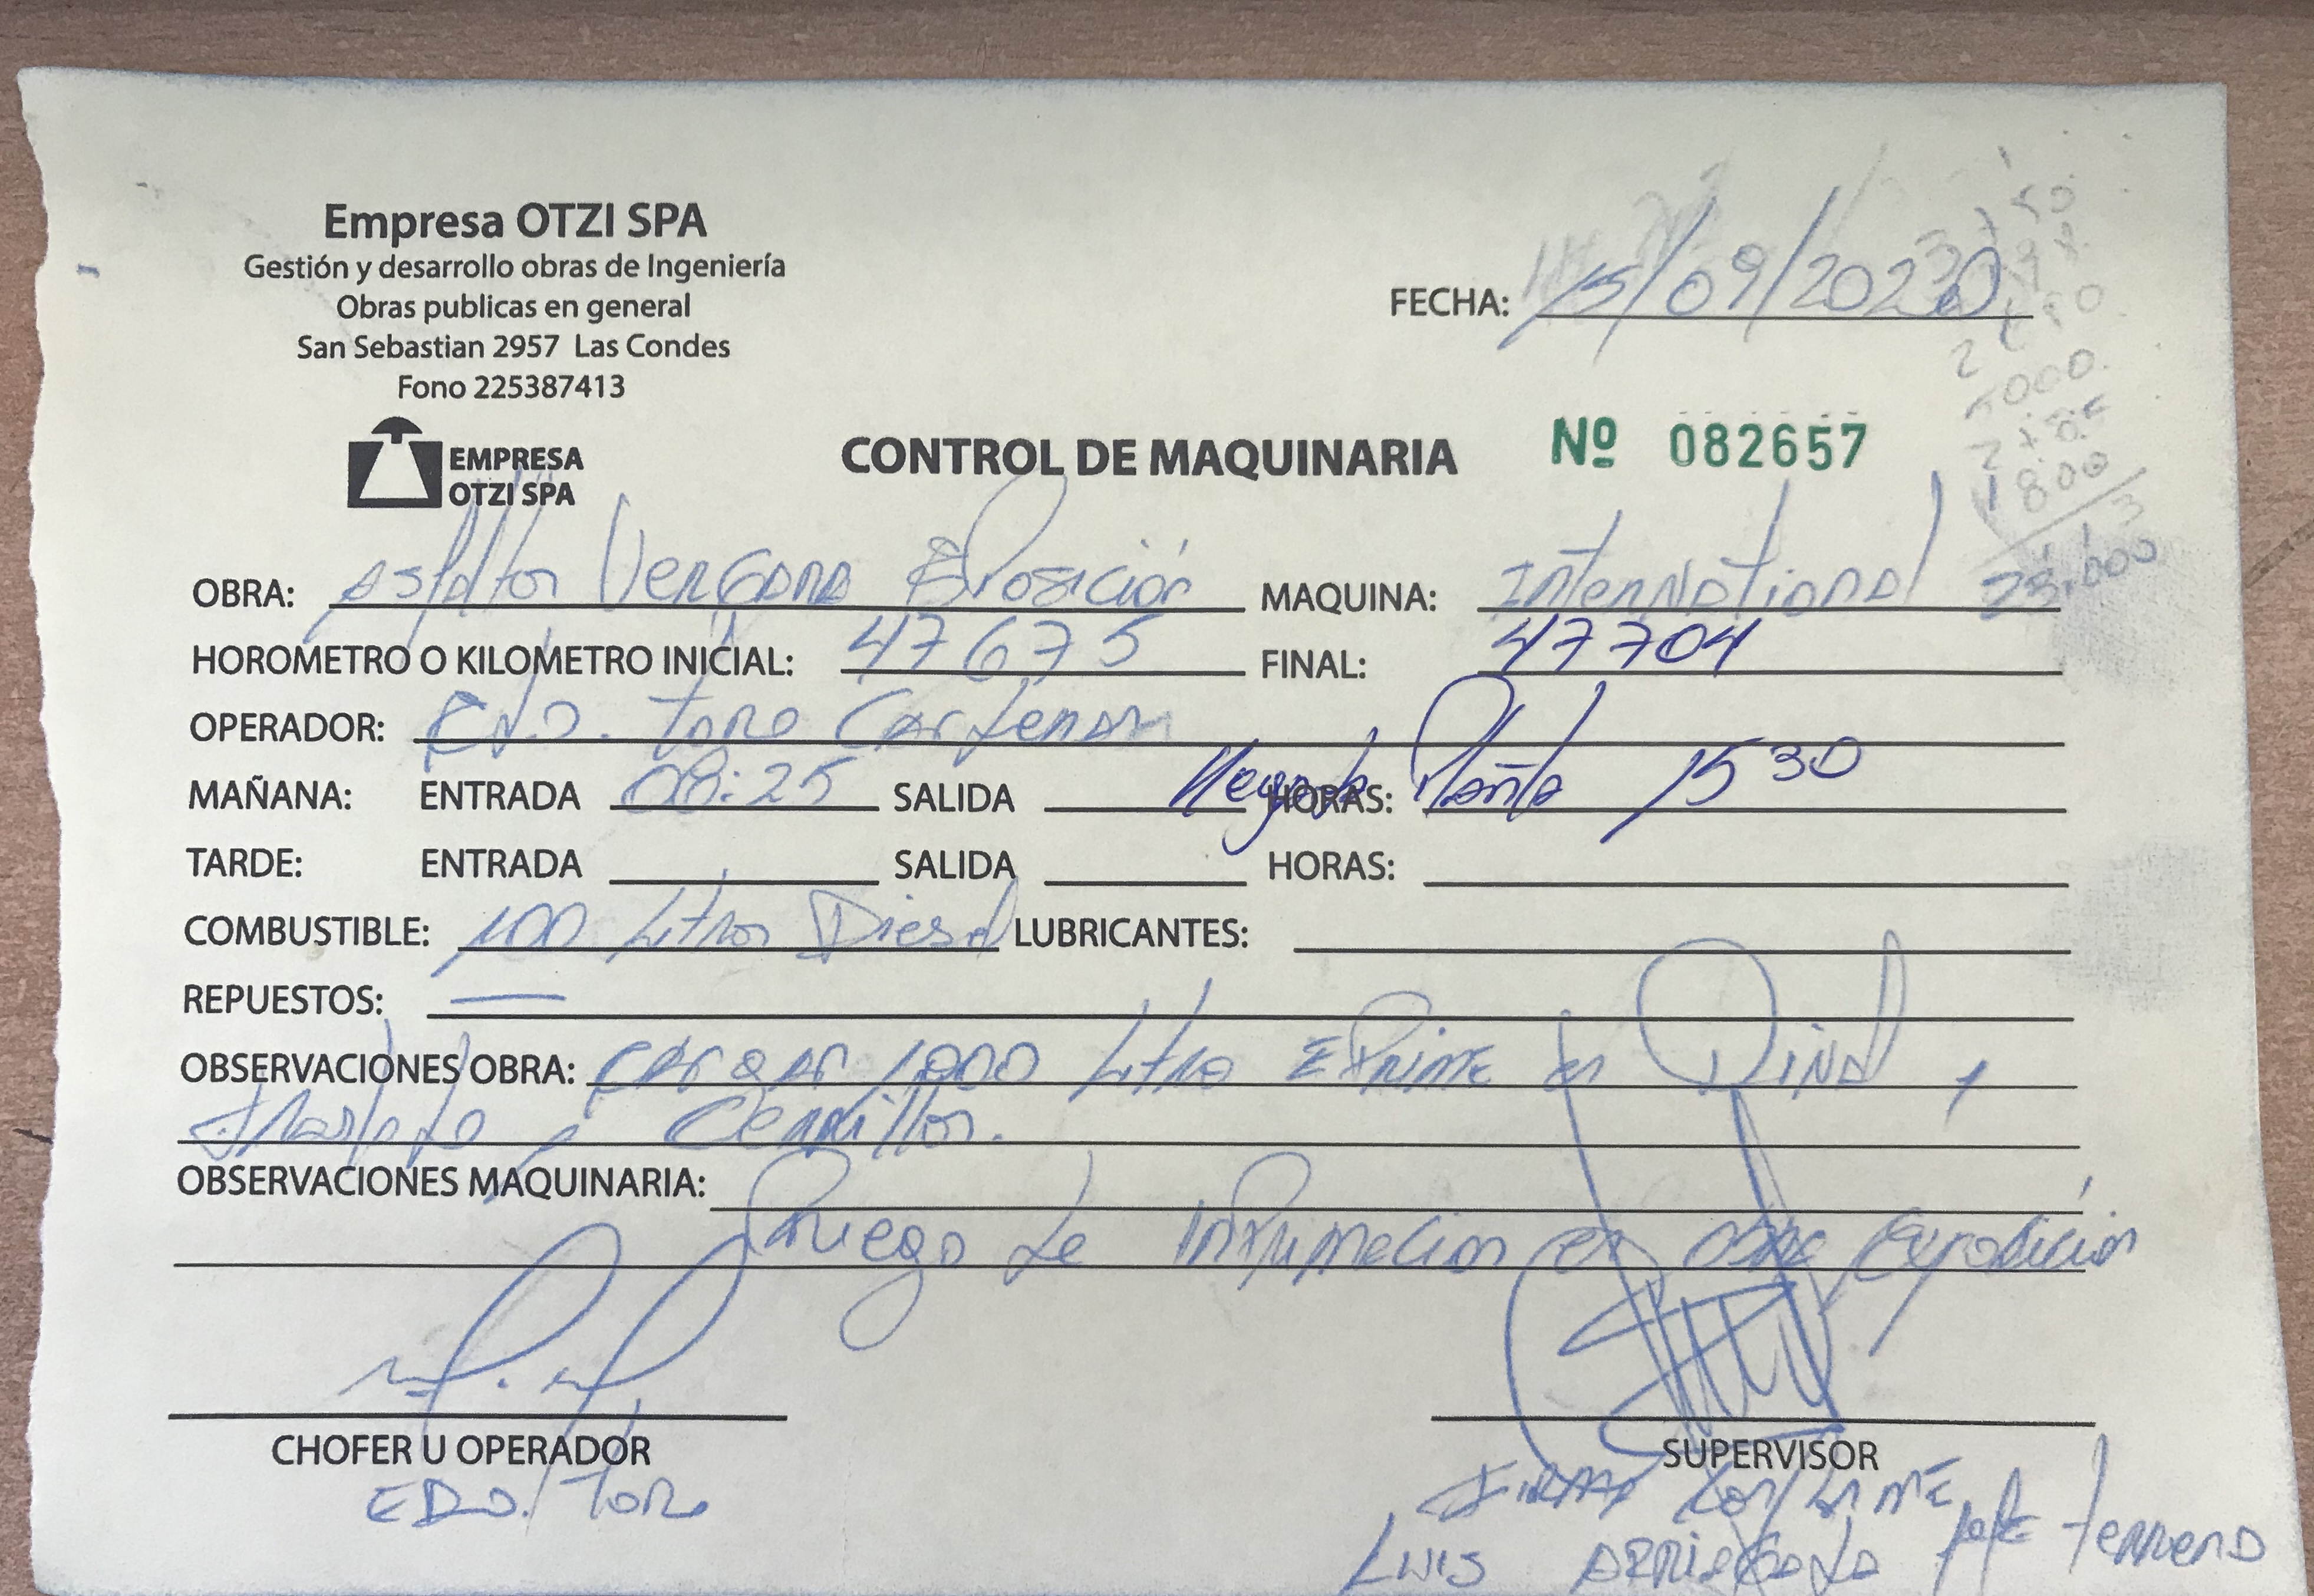 Empresa OTZI SPA
Gestión y desarrollo obras de Ingeniería
Obras publicas en general
San Sebastian 2957 Las Condes
Fono 225387413
EMPRESA
OTZI SPA
FECHA: 15/09/2020
CONTROL DE MAQUINARIA Nº 082657
OBRA: Asfaltos Vergara Exposición MAQUINA: International
HOROMETRO O KILOMETRO INICIAL: 47675 FINAL: 47704
OPERADOR: Edo. Toro Cardenas
MAÑANA: ENTRADA 08:25 SALIDA HORAS: Llegada Planta 15 30
TARDE: ENTRADA SALIDA HORAS:
COMBUSTIBLE: 100 Litros Diesel LUBRICANTES:
REPUESTOS: —
OBSERVACIONES OBRA: cargar 1000 Litro EPrime en
traslado a Cerrillos.
OBSERVACIONES MAQUINARIA:
Riego de Imprimacion en obra Exposición
CHOFER U OPERADOR SUPERVISOR
EDO. Toro
Firma Conforme
Luis Arriagada Jefe terreno